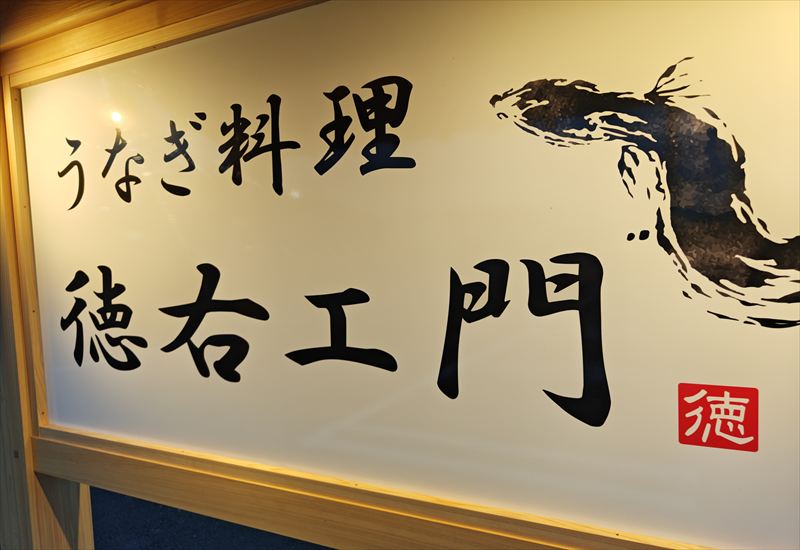 うなぎ料理
徳右エ門
徳